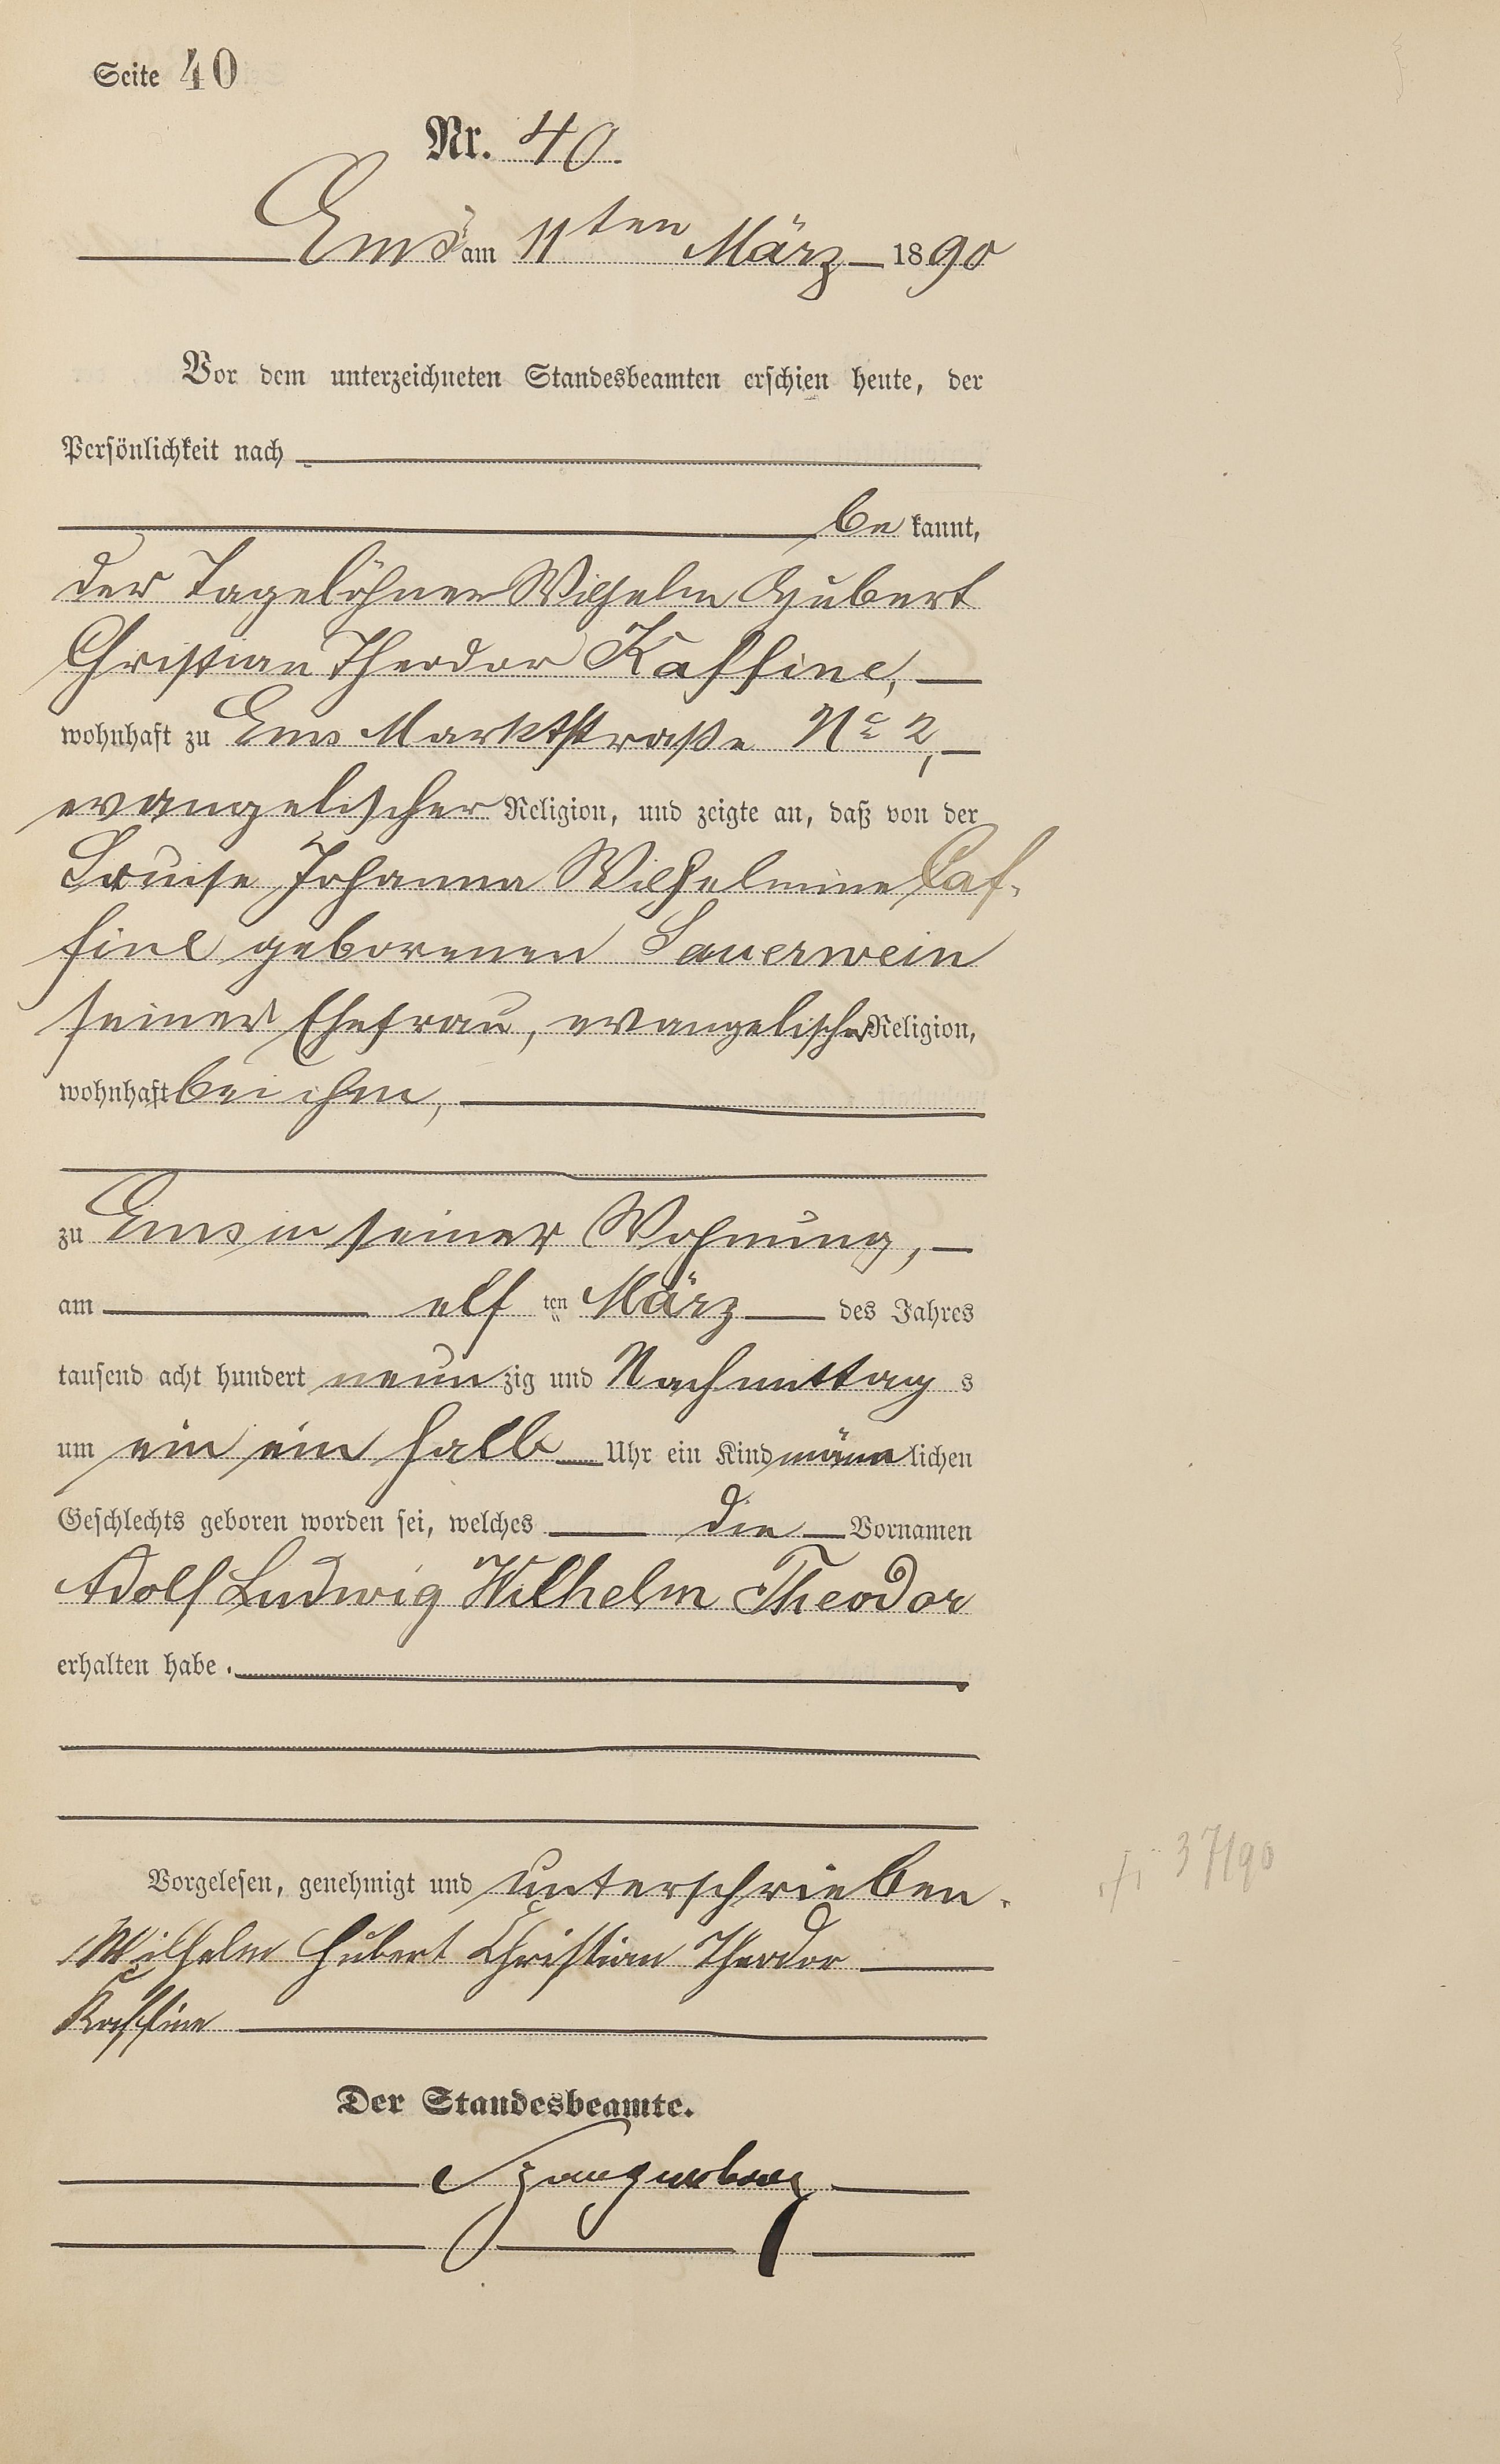 Seite 40
Nr. 40
Ems am 11ten März 1890
Vor dem unterzeichneten Standesbeamten erschien heute, der
Persönlichkeit nach
bekannt,
der Tagelöhner Wilhelm Hubert
Christian Theodor Kaffine,
wohnhaft zu Ems Marktstraße No 2,
evangelischer Religion, und zeigte an, daß von der
Louise Johanna Wilhelmine Caf-
fine geborenen Sauerwein
seiner Ehefrau, evangelischer Religion,
wohnhaft bei ihm,
zu Ems in seiner Wohnung,
am elf ten März des Jahres
tausend acht hundert neunzig und Nachmittags
um ein ein halb Uhr ein Kind männlichen
Geschlechts geboren worden sei, welches die Vornamen
Adolf Ludwig Wilhelm Theodor
erhalten habe.
Vorgelesen, genehmigt und unterschrieben.
Wilhelm Hubert Christian Theodor
Kaffine
Der Standesbeamte.
37/90